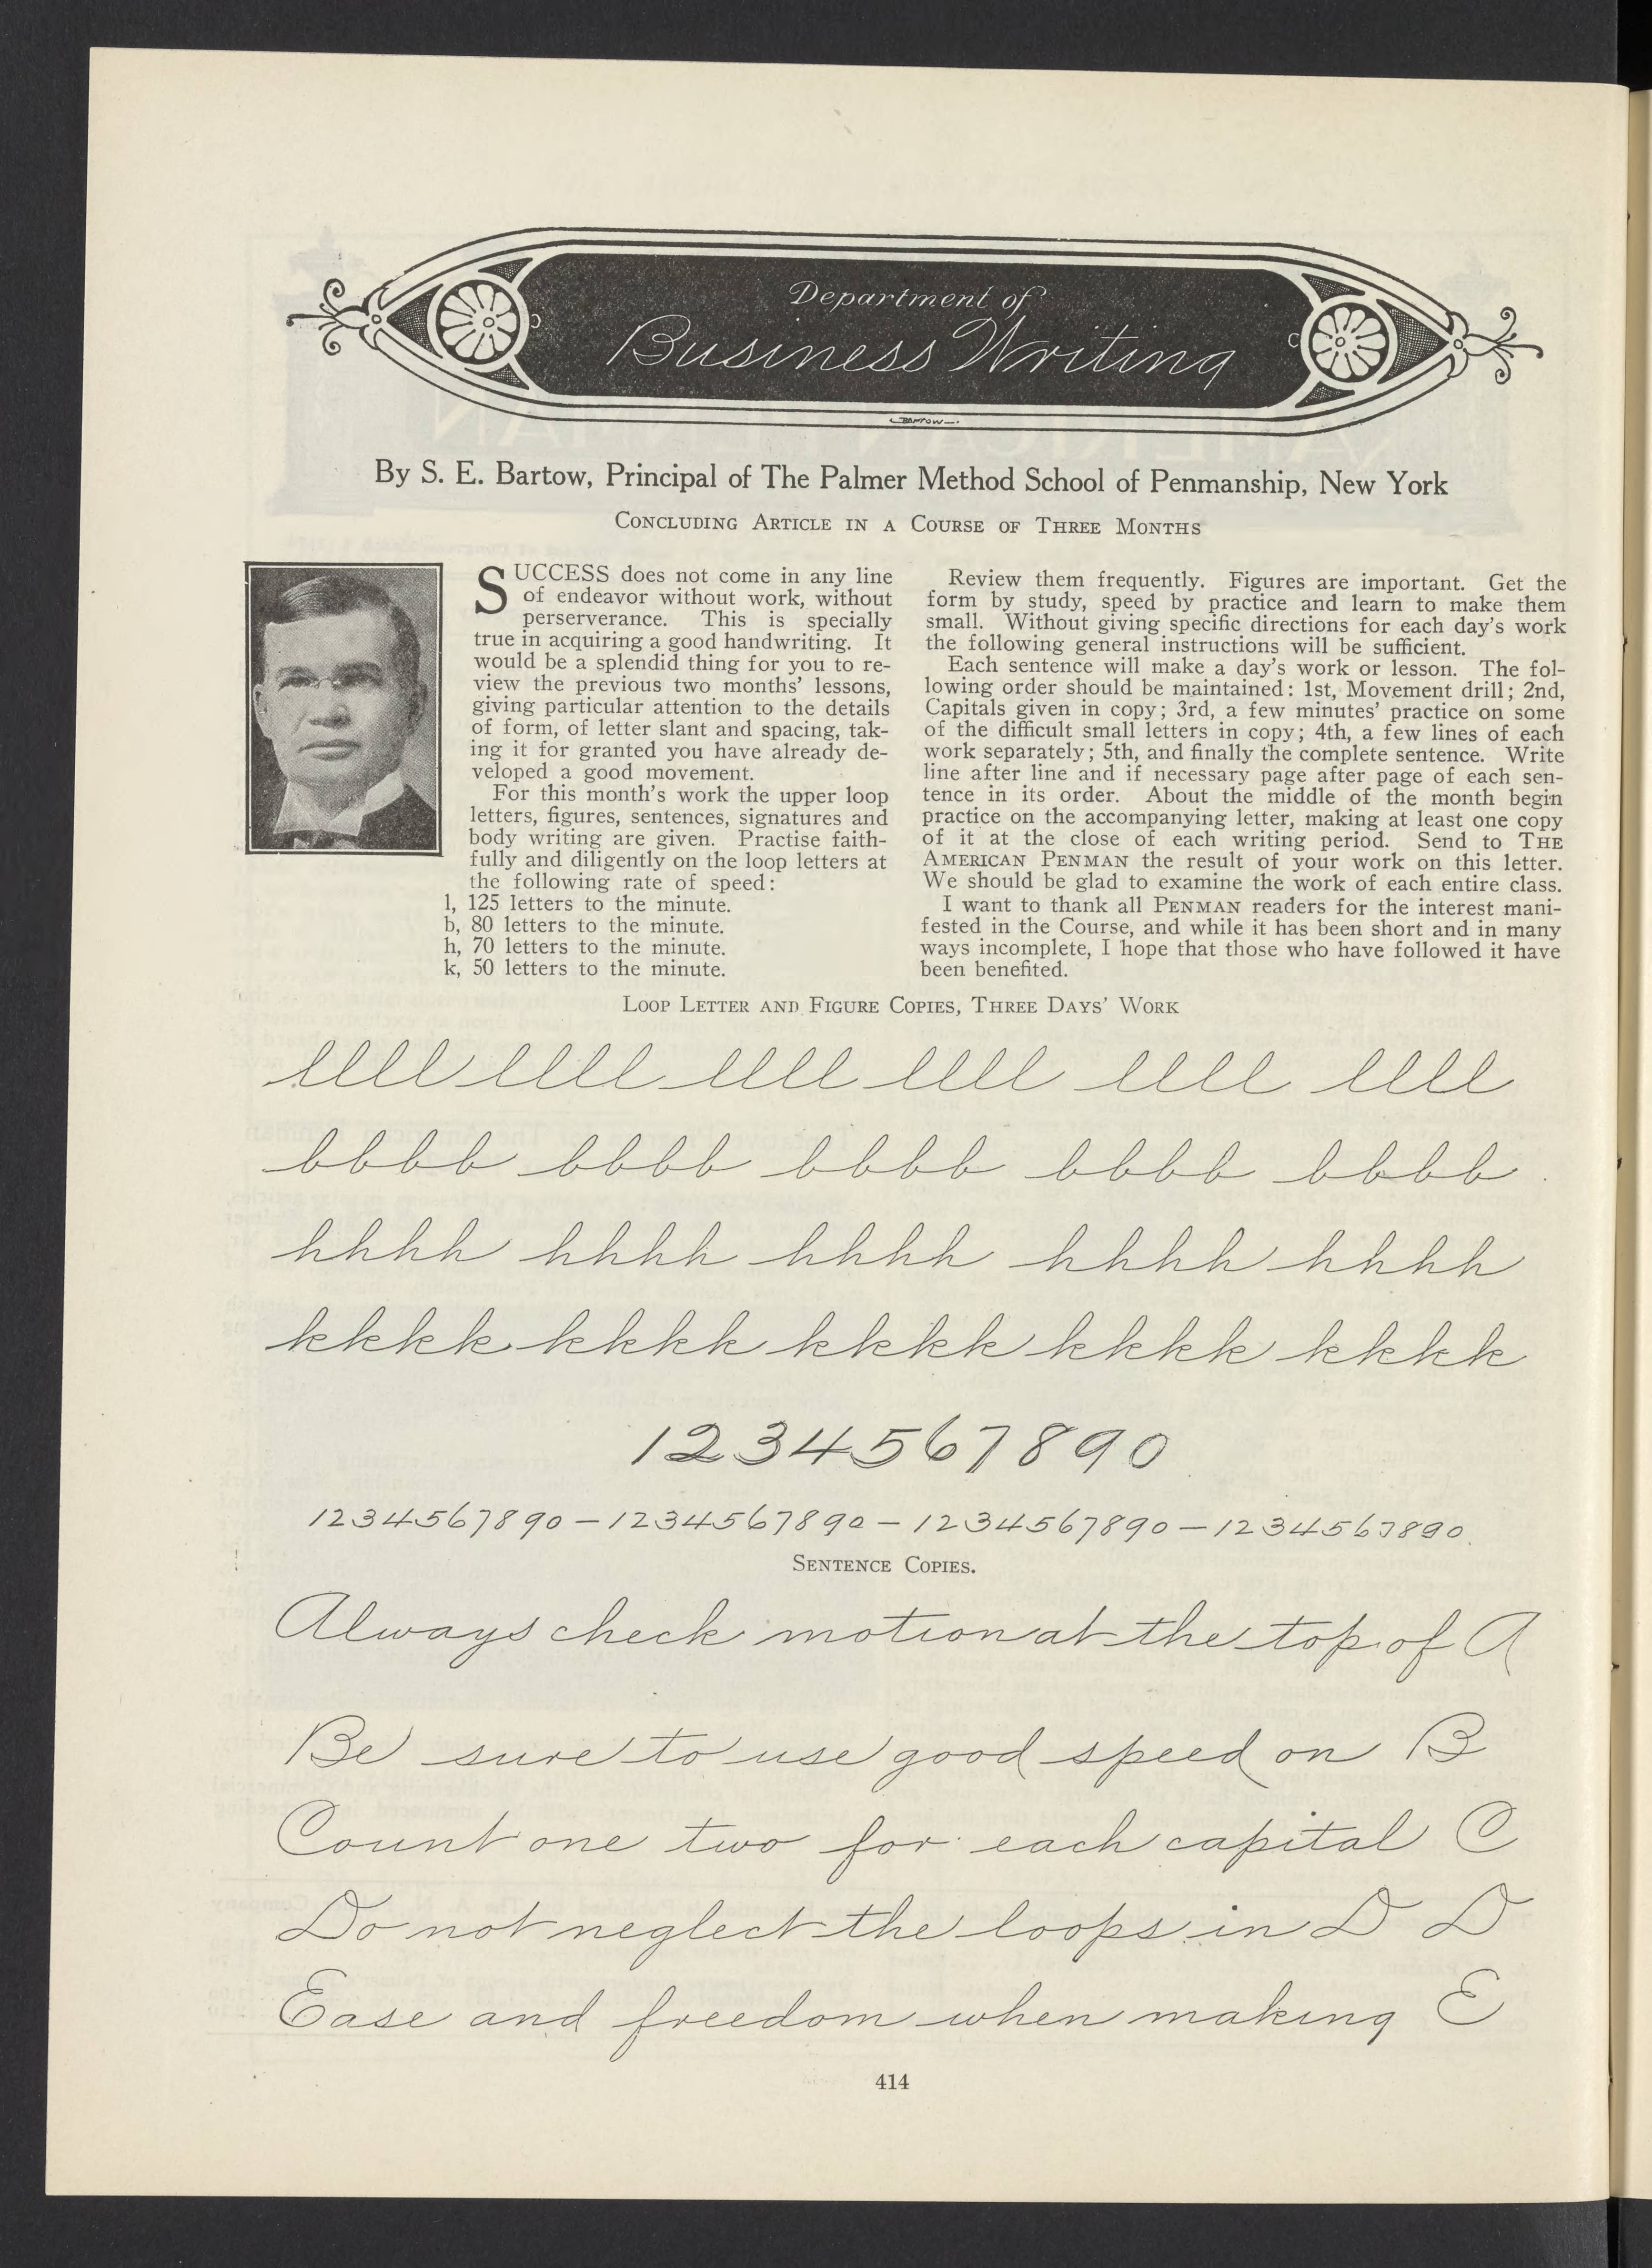 Department of
Business Writing
BARTOW
By S. E. Bartow, Principal of The Palmer Method School of Penmanship, New York
Concluding Article in a Course of Three Months
SUCCESS does not come in any line
of endeavor without work, without
perserverance. This is specially
true in acquiring a good handwriting. It
would be a splendid thing for you to re-
view the previous two months' lessons,
giving particular attention to the details
of form, of letter slant and spacing, tak-
ing it for granted you have already de-
veloped a good movement.
For this month's work the upper loop
letters, figures, sentences, signatures and
body writing are given. Practise faith-
fully and diligently on the loop letters at
the following rate of speed:
l, 125 letters to the minute.
b, 80 letters to the minute.
h, 70 letters to the minute.
k, 50 letters to the minute.
Review them frequently. Figures are important. Get the
form by study, speed by practice and learn to make them
small. Without giving specific directions for each day's work
the following general instructions will be sufficient.
Each sentence will make a day's work or lesson. The fol-
lowing order should be maintained: 1st, Movement drill; 2nd,
Capitals given in copy; 3rd, a few minutes' practice on some
of the difficult small letters in copy; 4th, a few lines of each
work separately; 5th, and finally the complete sentence. Write
line after line and if necessary page after page of each sen-
tence in its order. About the middle of the month begin
practice on the accompanying letter, making at least one copy
of it at the close of each writing period. Send to The
American Penman the result of your work on this letter.
We should be glad to examine the work of each entire class.
I want to thank all Penman readers for the interest mani-
fested in the Course, and while it has been short and in many
ways incomplete, I hope that those who have followed it have
been benefited.
Loop Letter and Figure Copies, Three Days' Work
llll llll llll llll llll llll
bbbb bbbb bbbb bbbb bbbb
hhhh hhhh hhhh hhhh hhhh
kkkkk kkkkk kkkkk kkkkk kkkkk
1234567890
1234567890 - 1234567890 - 1234567890 - 1234567890
Sentence Copies.
Always check motion at the top of A
Be sure to use good speed on B
Count one two for each capital C
Do not neglect the loops in D D
Ease and freedom when making E
414